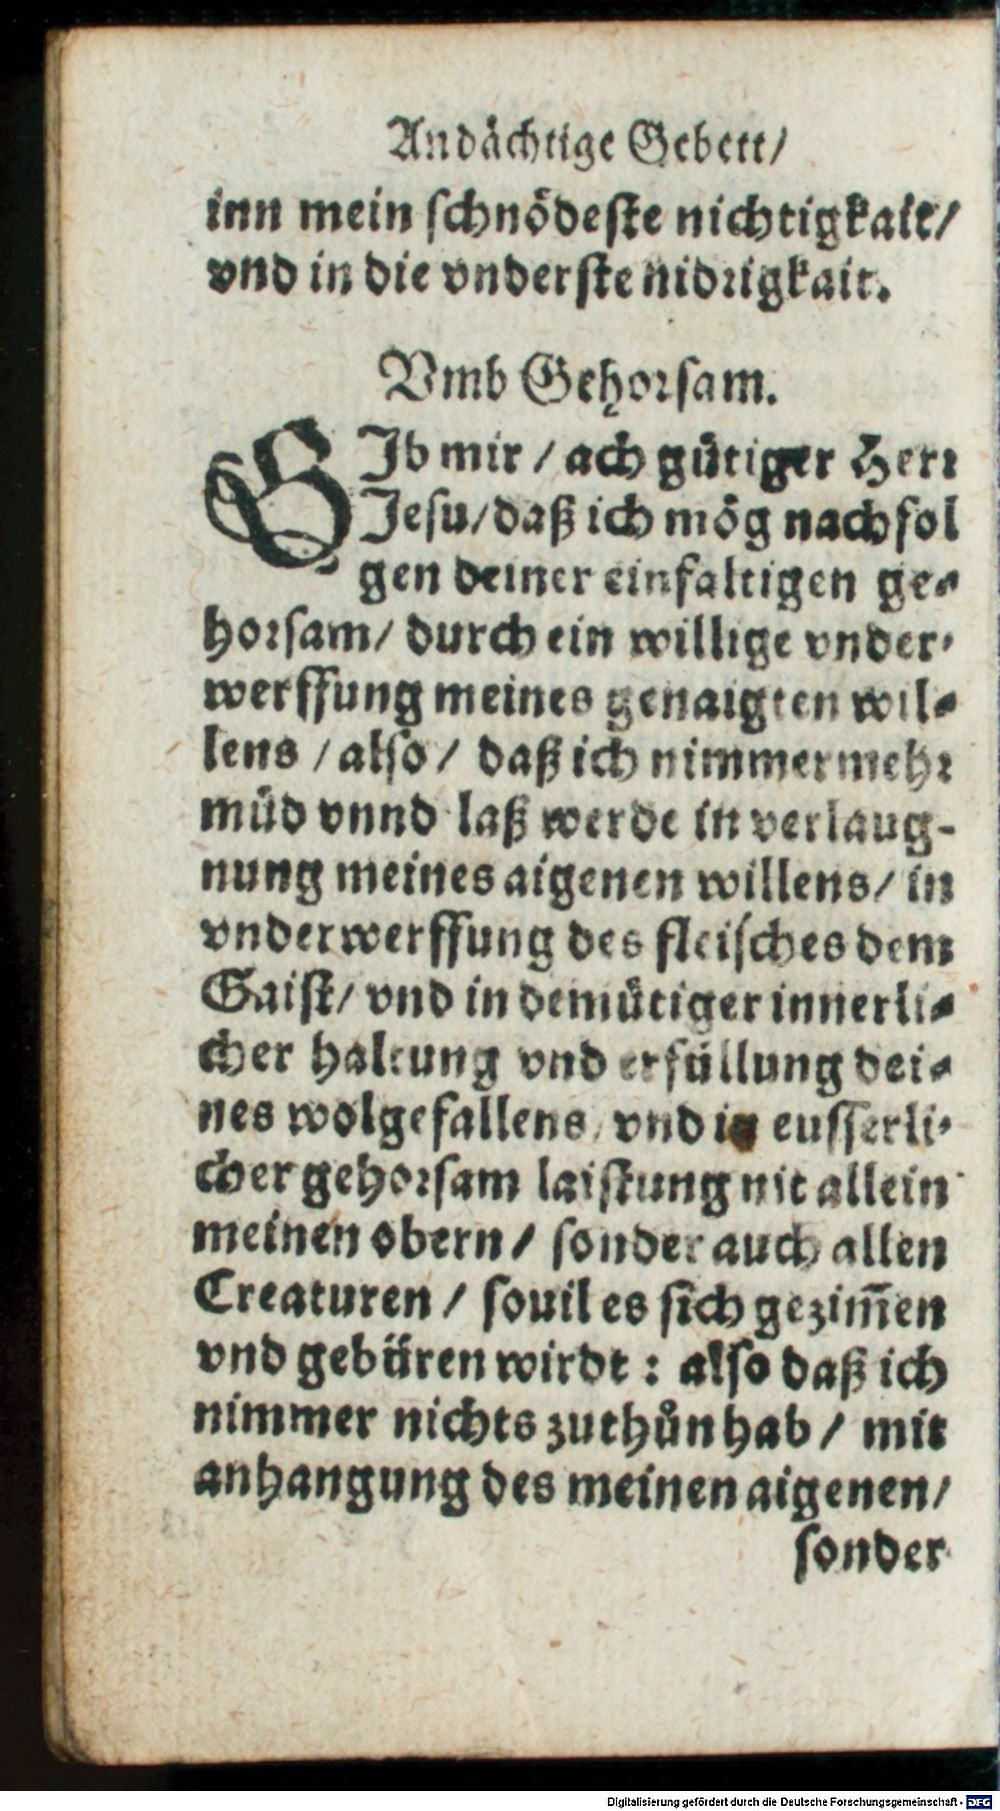 Andächtige Gebett/
inn mein schnödeste nichtigkait/
vnd in die vnderste nidrigkait.
Vmb Gehorsam.
GIb mir / ach gütiger Herr
Jesu/ daß ich mög nachfol
gen deiner einfaltigen ge-
horsam/ durch ein willige vnder-
werffung meines genaigten wil-
lens / also / daß ich nimmermehr
müd vnnd laß werde in verlaug-
nung meines aigenen willens/ in
vnderwerffung des fleisches dem
Gaist/ vnd in demütiger innerli-
cher haltung vnd erfüllung dei-
nes wolgefallens/ vnd in eusserli-
cher gehorsam laistung nit allein
meinen obern / sonder auch allen
Creaturen / souil es sich gezim̃en
vnd gebüren wirdt : also daß ich
nimmer nichts zuthůn hab / mit
anhangung des meinen aigenen/
sonder
Digitalisierung gefördert durch die Deutsche Forschungsgemeinschaft - DFG